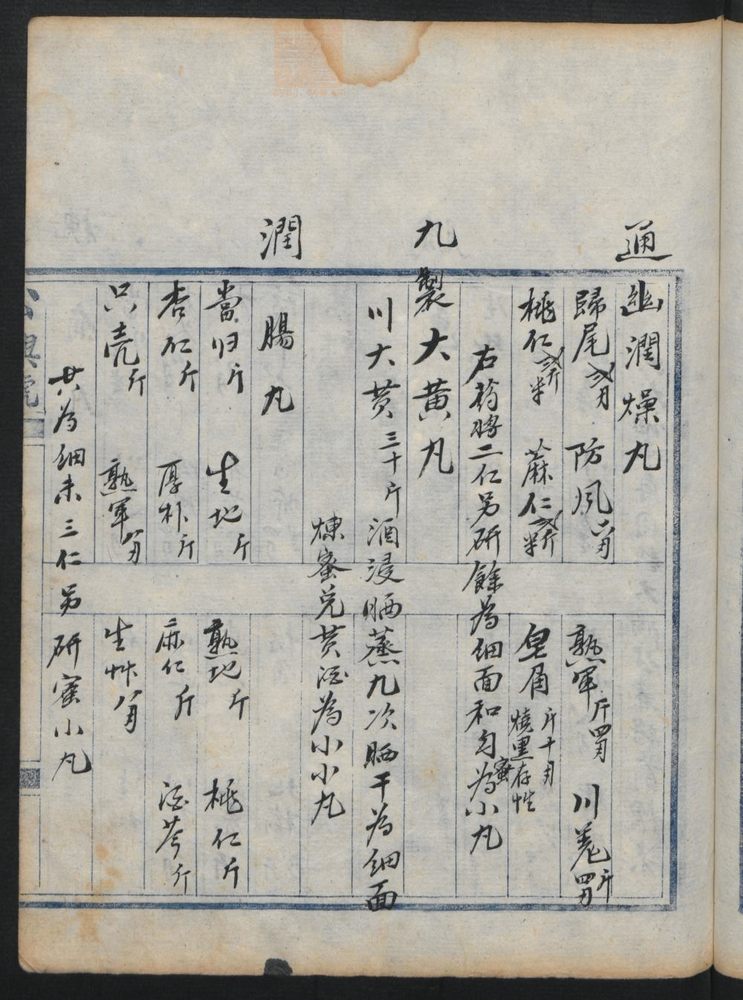 通幽潤燥丸
歸尾 防風 熟軍斤四両 川羌斤四両
桃仁 蔴仁 皂角斤十両燒黑存性
右葯將二仁另研餘為細面和勻蜜為小丸
九製大黃丸
川大黃三十斤酒浸晒蒸九次晒干為細面
煉蜜兑黃酒為小小丸
潤腸丸
當归斤 生地斤 熟地斤 桃仁斤
杏仁斤 厚朴斤 麻仁斤 酒芩斤
只壳斤 熟軍 生草
共為細末三仁另研蜜小丸